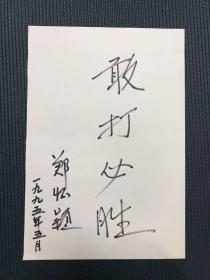 敢打必胜
郑怀题
一九九五年五月